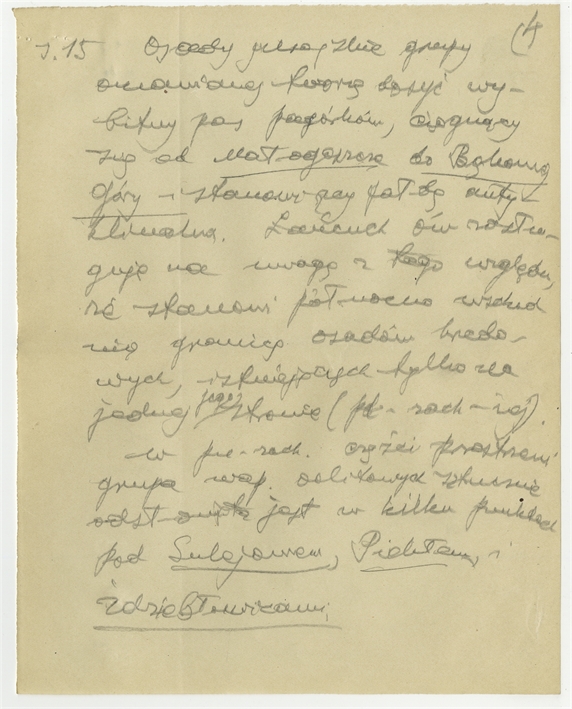 (4
s. 15 Osady jurajskie grupy
omawianej tworzą dosyć wy-
bitny pas pagórków, ciągnący
się od Małogoszcza do Bąkowej
Góry – i stanowiący fałdę anty-
klinalną. Łańcuch ów zasłu-
guje na uwagę z tego względu,
że stanowi północno wschod
nią granicę osadów kredo-
wych, istniejących tylko na
jednej jego stronie (pł-zach-iej).
w pn-zach. części przestrzeni
grupa wap. oolitowych sztucznie
odsłonięta jest w kilku punktach
pod Sulejowem, i